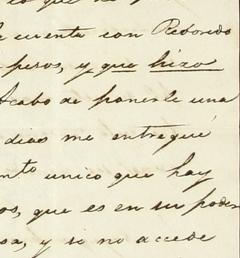 cuenta con Redondo
pesos, y que hizo
Acabo de ponerle una
dias me entregué
unico que hay
os, que es en su poder
sa, y si no accede